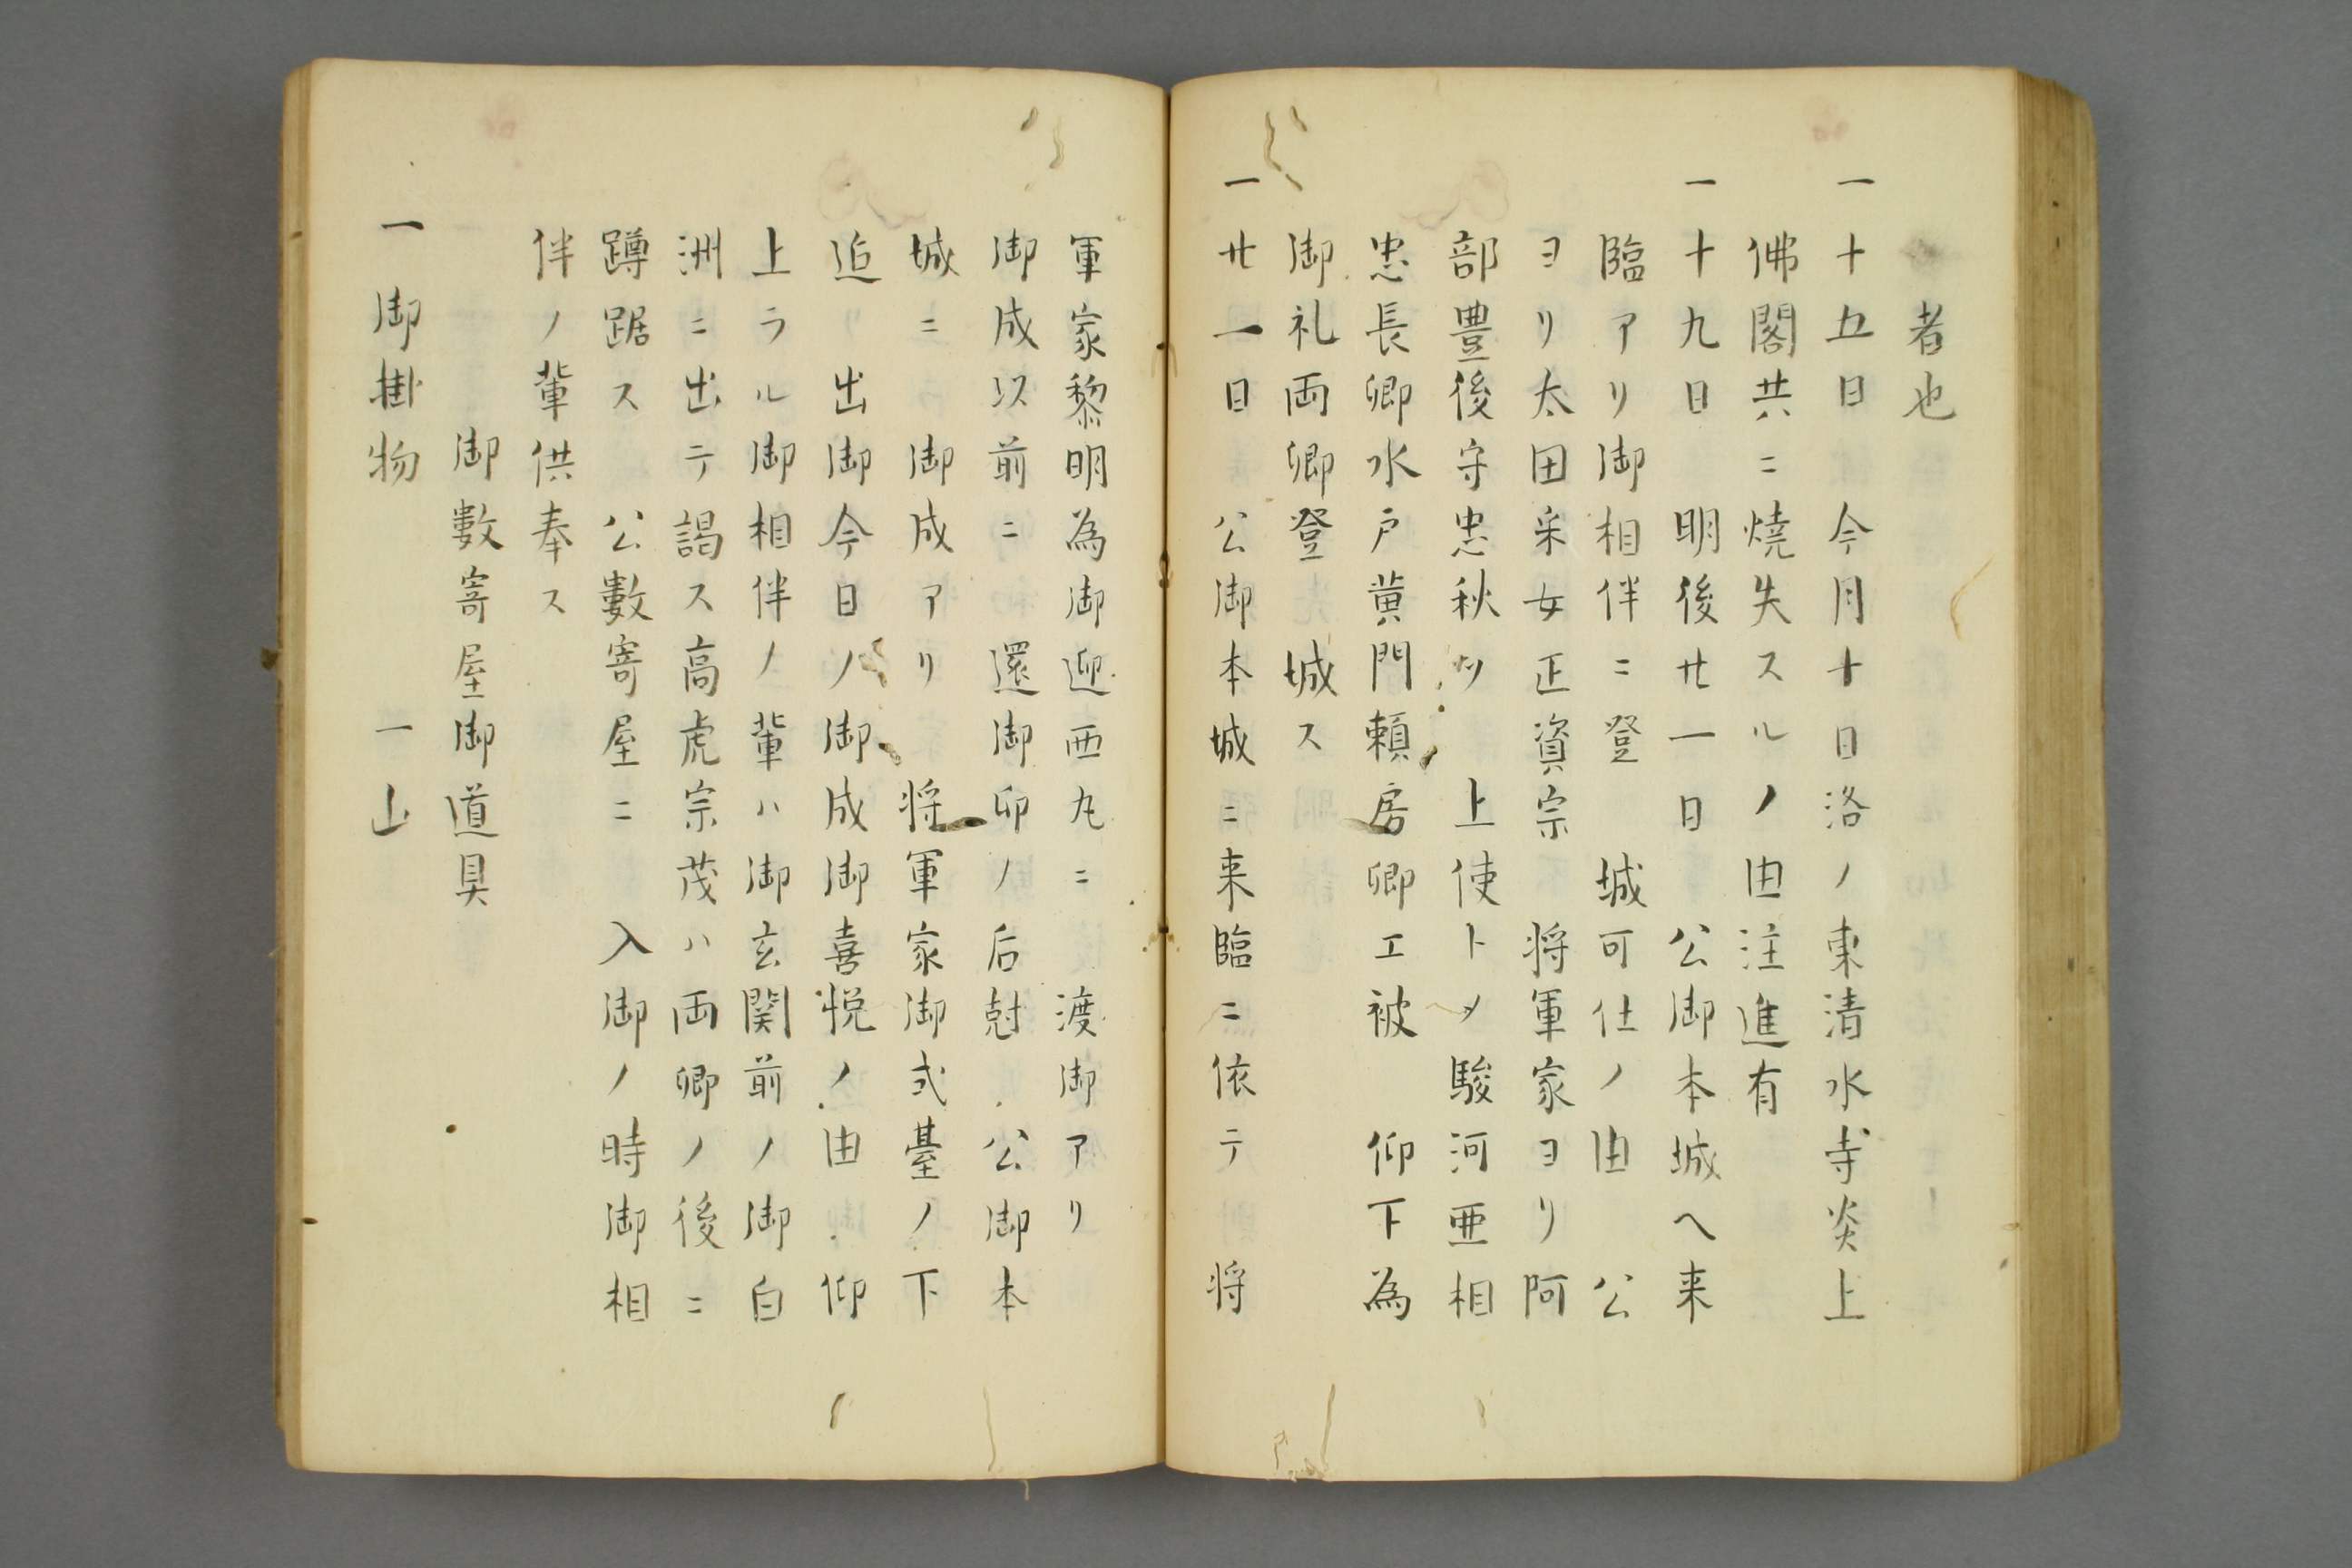 者也
一十五日　今月十日洛ノ東清水寺炎上
佛閣共ニ燒失スルノ由注進有
一十九日　明後廿一日　公御本城ヘ来
臨アリ御相伴ニ登　城可仕ノ由　公
ヨリ太田采女正資宗　将軍家ヨリ阿
部豊後守忠秋ヲ　上使トメ駿河亜相
忠長卿水戸黄門頼房卿エ被　仰下為
御礼両卿登　城ス
一廿一日　公御本城ニ来臨ニ依テ　将
軍家黎明為御迎西丸ニ　渡御アリ
御成以前ニ　還御卯ノ后尅　公御本
城ニ　御成アリ　将軍家御式臺ノ下
迠リ出御今日ノ御成御喜悦ノ由　仰
上ラル御相伴ノ輩ハ御玄関前ノ御白
洲ニ出テ謁ス高虎宗茂ハ両卿ノ後ニ
蹲踞ス　公數寄屋ニ　入御ノ時御相
伴ノ輩供奉ス
御數寄屋御道具
一御掛物　一山